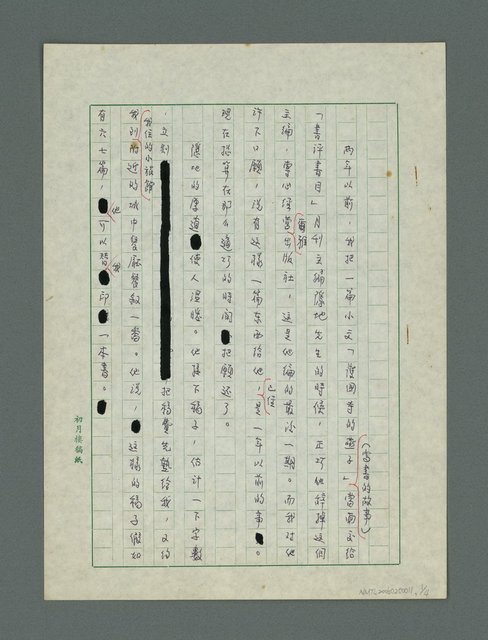 兩年以前，我把一篇小文「慈園寺的燕子」當面交給
（當書的故事）
「書評書目」月刊主編隱地先生的時候，正巧他辭掉這個
主編，專心經營出版社，這是他編的最後一期。而我對他
許下口願，說有這樣一篇東西給他，是一年以前的事。
已經
現在總算在那麼湊巧的時間把願還了。
隱地的厚道使人溫暖。他接下稿子，估計一下字數
，立刻
把稿費先墊給我，又約
我到附近的城中餐廳餐敘一番。他說，這樣的稿子假如
我住的小旅館
有六七篇，可以替印一本書。
他
我
初月樓稿紙
NMTL20060250011, 3/4